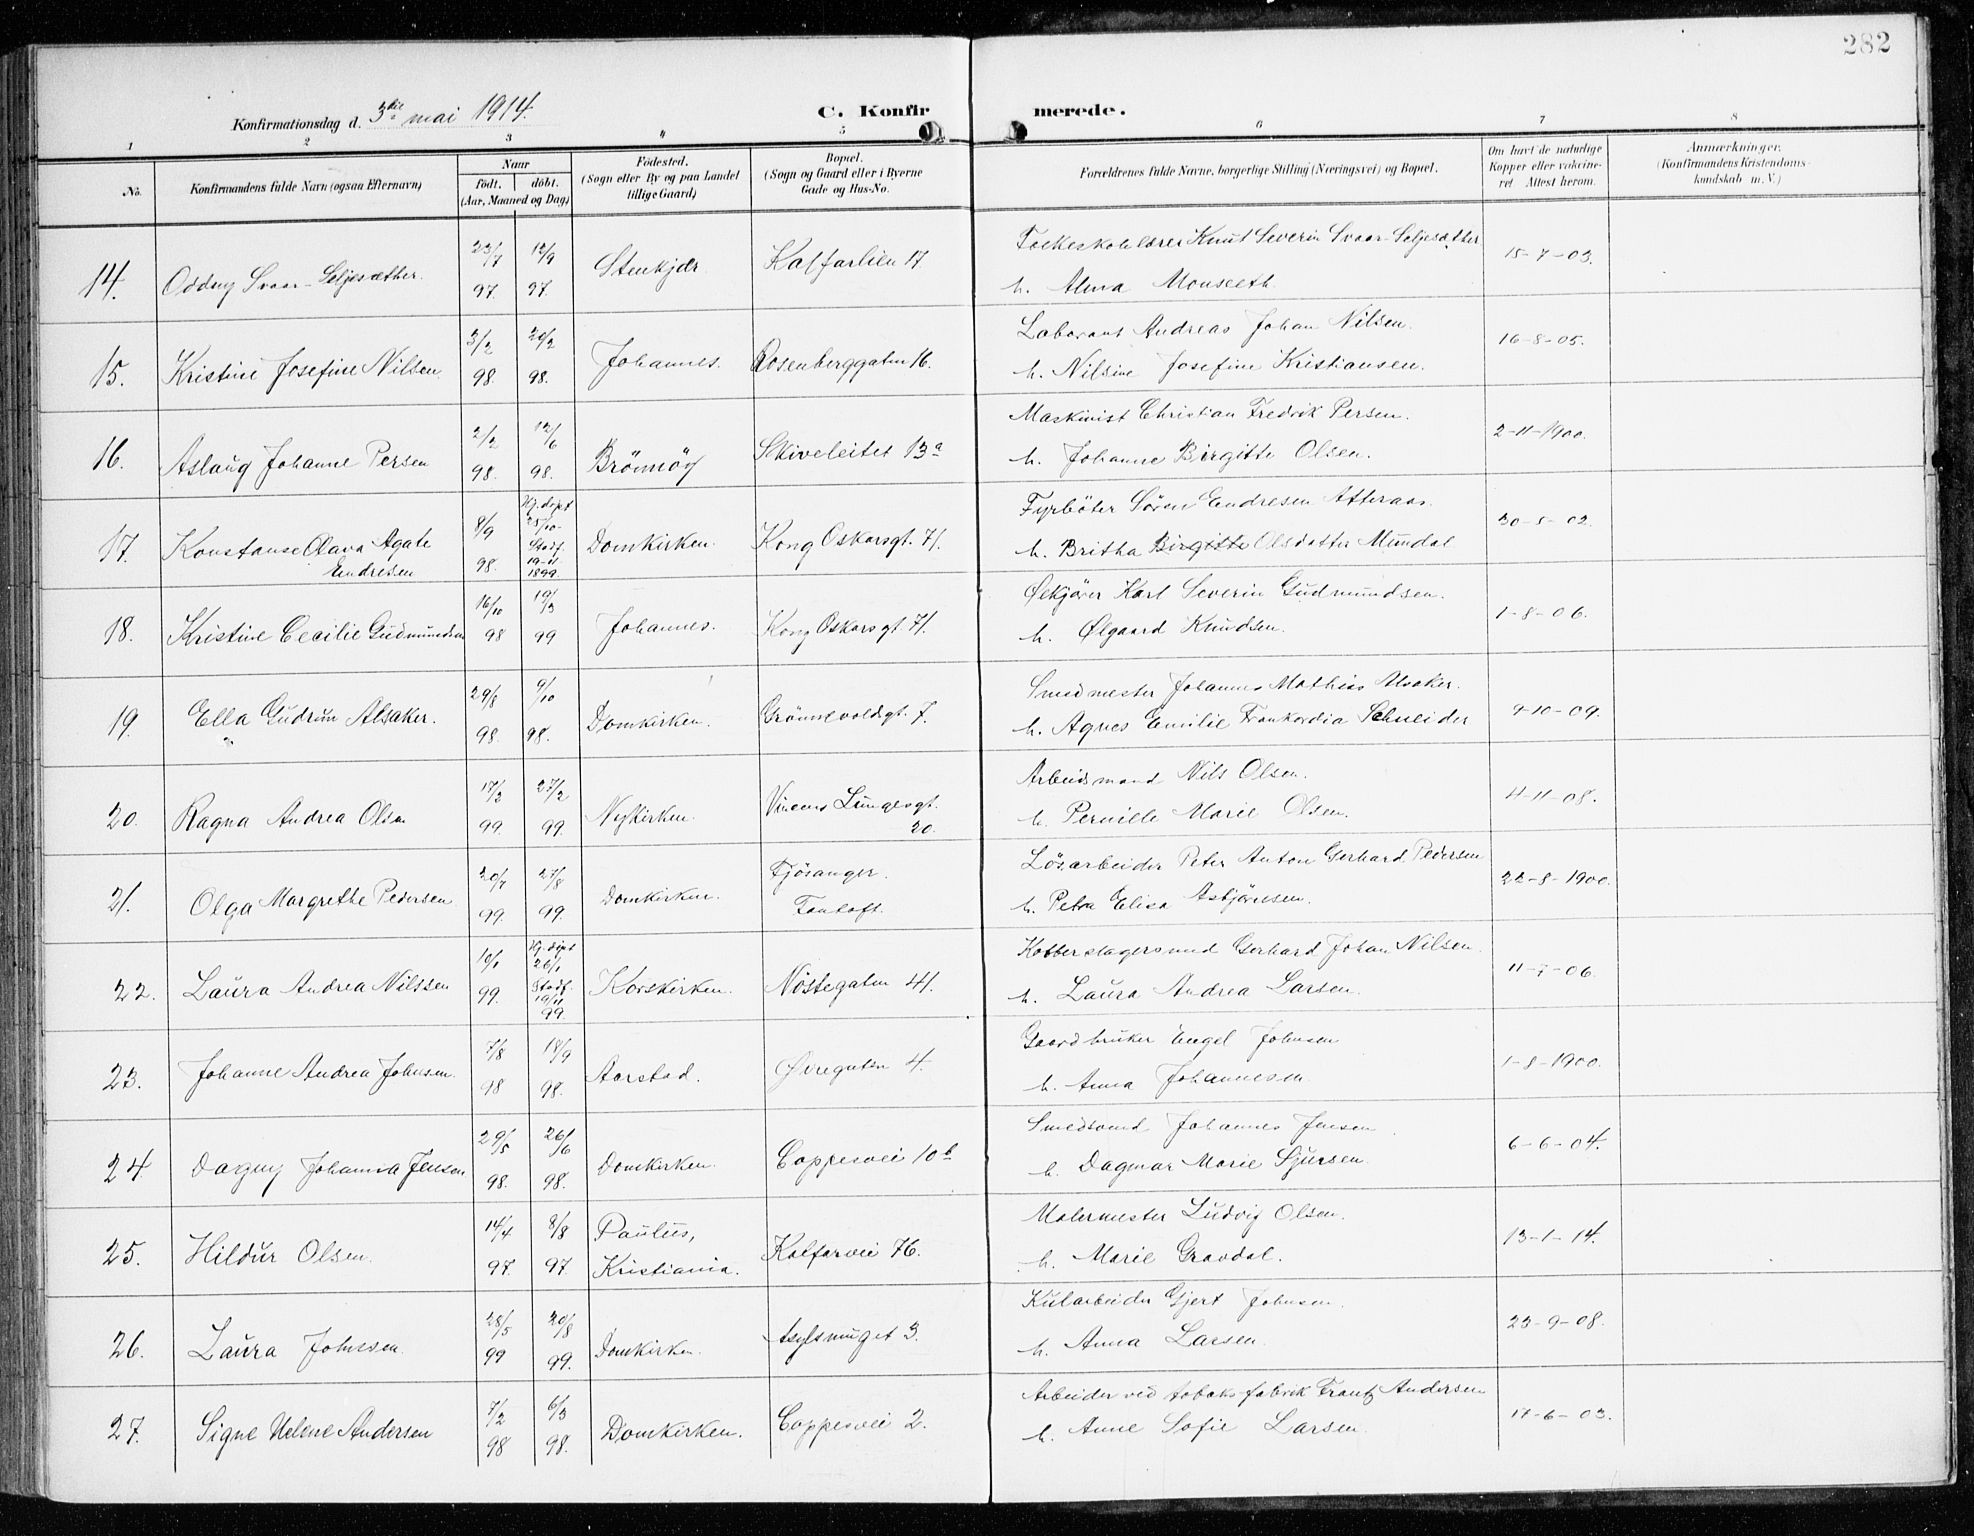 282
Konfirmationsdag d. 3die mai 1914.
C. Konfirmerede.
1 2 3 4 5 6 7 8
No.
Konfirmandens fulde Navn (ogsaa Efternavn)
Naar
födt. döbt.
(Aar, Maaned og Dag)
Födested.
(Sogn eller By og paa Landet
tillige Gaard)
Bopæl.
(Sogn og Gaard eller i Byerne
Gade og Hus-No.
Forældrenes fulde Navne, borgerlige Stilling (Næringsvei) og Bopæl.
Om havt de naturlige
Kopper eller vakcine-
ret Attest herom.
Anmærkninger.
(Konfirmandens Kristendoms-
kundskab m. V.)
14. Oddny Svaar-Seljesæther. 23/7 97. 12/9 97. Stenkjær Kalfarlien 17.
Folkeskolelærer Knut Severin Svaar-Seljesæther
h. Alma Monseeth. 15-7-03.
15. Kristine Josefine Nilsen. 3/2 98. 20/2 98. Johannes. Rosenberggaten 16.
Laborant Andreas Johan Nilsen.
h. Nilsine Josefine Kristiansen. 16-8-05.
16. Aslaug Johanne Persen 2/2 98. 12/6 98. Brönnöy Skiveleitet 13a
Maskinist Christian Fredrik Persen.
h. Johanne Birgitte Olsen. 2-11-1900.
17. Konstanse Olava Agate
Endresen 8/9 98. Hj. döpt 25/10- Stadf. 19-11 1899. Domkirken. Kong Oskarsgt. 71.
Fyrböter Sören Endresen Atteraas.
h. Britha Birgitte Olsdatter Mundal 30-5-02.
18. Kristine Cecilie Gudmundsen 16/10 98 19/3 99 Johannes. Kong Oskarsgt. 71.
Ølkjører Karl Severin Gudmundsen.
h. Ølgaard Knudsen. 1-8-06.
19. Ella Gudrun Alsaker. 29/8 98. 9/10 98. Domkirken. Grönnevoldsgt. 7.
Smedmester Johannes Mathias Alsaker.
h. Agnes Emilie Frankordia Schneider 9-10-09.
20. Ragna Andrea Olsen 17/2 99. 27/2 99. Nykirken. Vincens Lungesgt.
20.
Arbeidsmand Nils Olsen.
h. Pernille Marie Olsen. 4-11-08.
21. Olga Margrethe Pedersen 20/7 99. 27/8 99. Domkirken. Fjösanger.
Fantoft.
Lösarbeider Peter Anton Gerhard Pedersen
h. Petra Elisa Asbjörnsen. 22-8-1900.
22. Laura Andrea Nilssen 10/1 99. Hj. döpt 26/1 Stadf. 19/11 99. Korskirken. Nöstegaten 41.
Kobberslagersvend Gerhard Johan Nilsen.
h. Laura Andrea Larsen. 11-7-06.
23. Johanne Andrea Johnsen. 7/8 98 18/9 98. Aarstad. Øvregaten 4.
Gaardbruker Engel Johnsen
h. Anna Johannesen. 1-8-1900.
24. Dagny Johanna Jensen 29/5 98. 26/6 98. Domkirken. Coppesvei 10b
Smedsvend Johannes Jensen.
h. Dagmar Marie Sjursen. 6-6-04.
25. Hildur Olsen. 14/4 97. 8/8 97. Paulus,
Kristiania. Kalfarvei 76.
Malermester Ludvig Olsen.
h. Marie Gravdal. 13-1-14.
26. Laura Johnsen. 28/5 99 20/8 99. Domkirken. Asylsmuget 3.
Kularbeider Gjert Johnsen.
h. Anna Larsen. 23-9-08.
27. Signe Helene Andersen 7/2 98 6/3 98. Domkirken. Coppesvei 2.
Arbeider ved tobaksfabrik Frantz Andersen
h. Anne Sofie Larsen. 17-6-03.